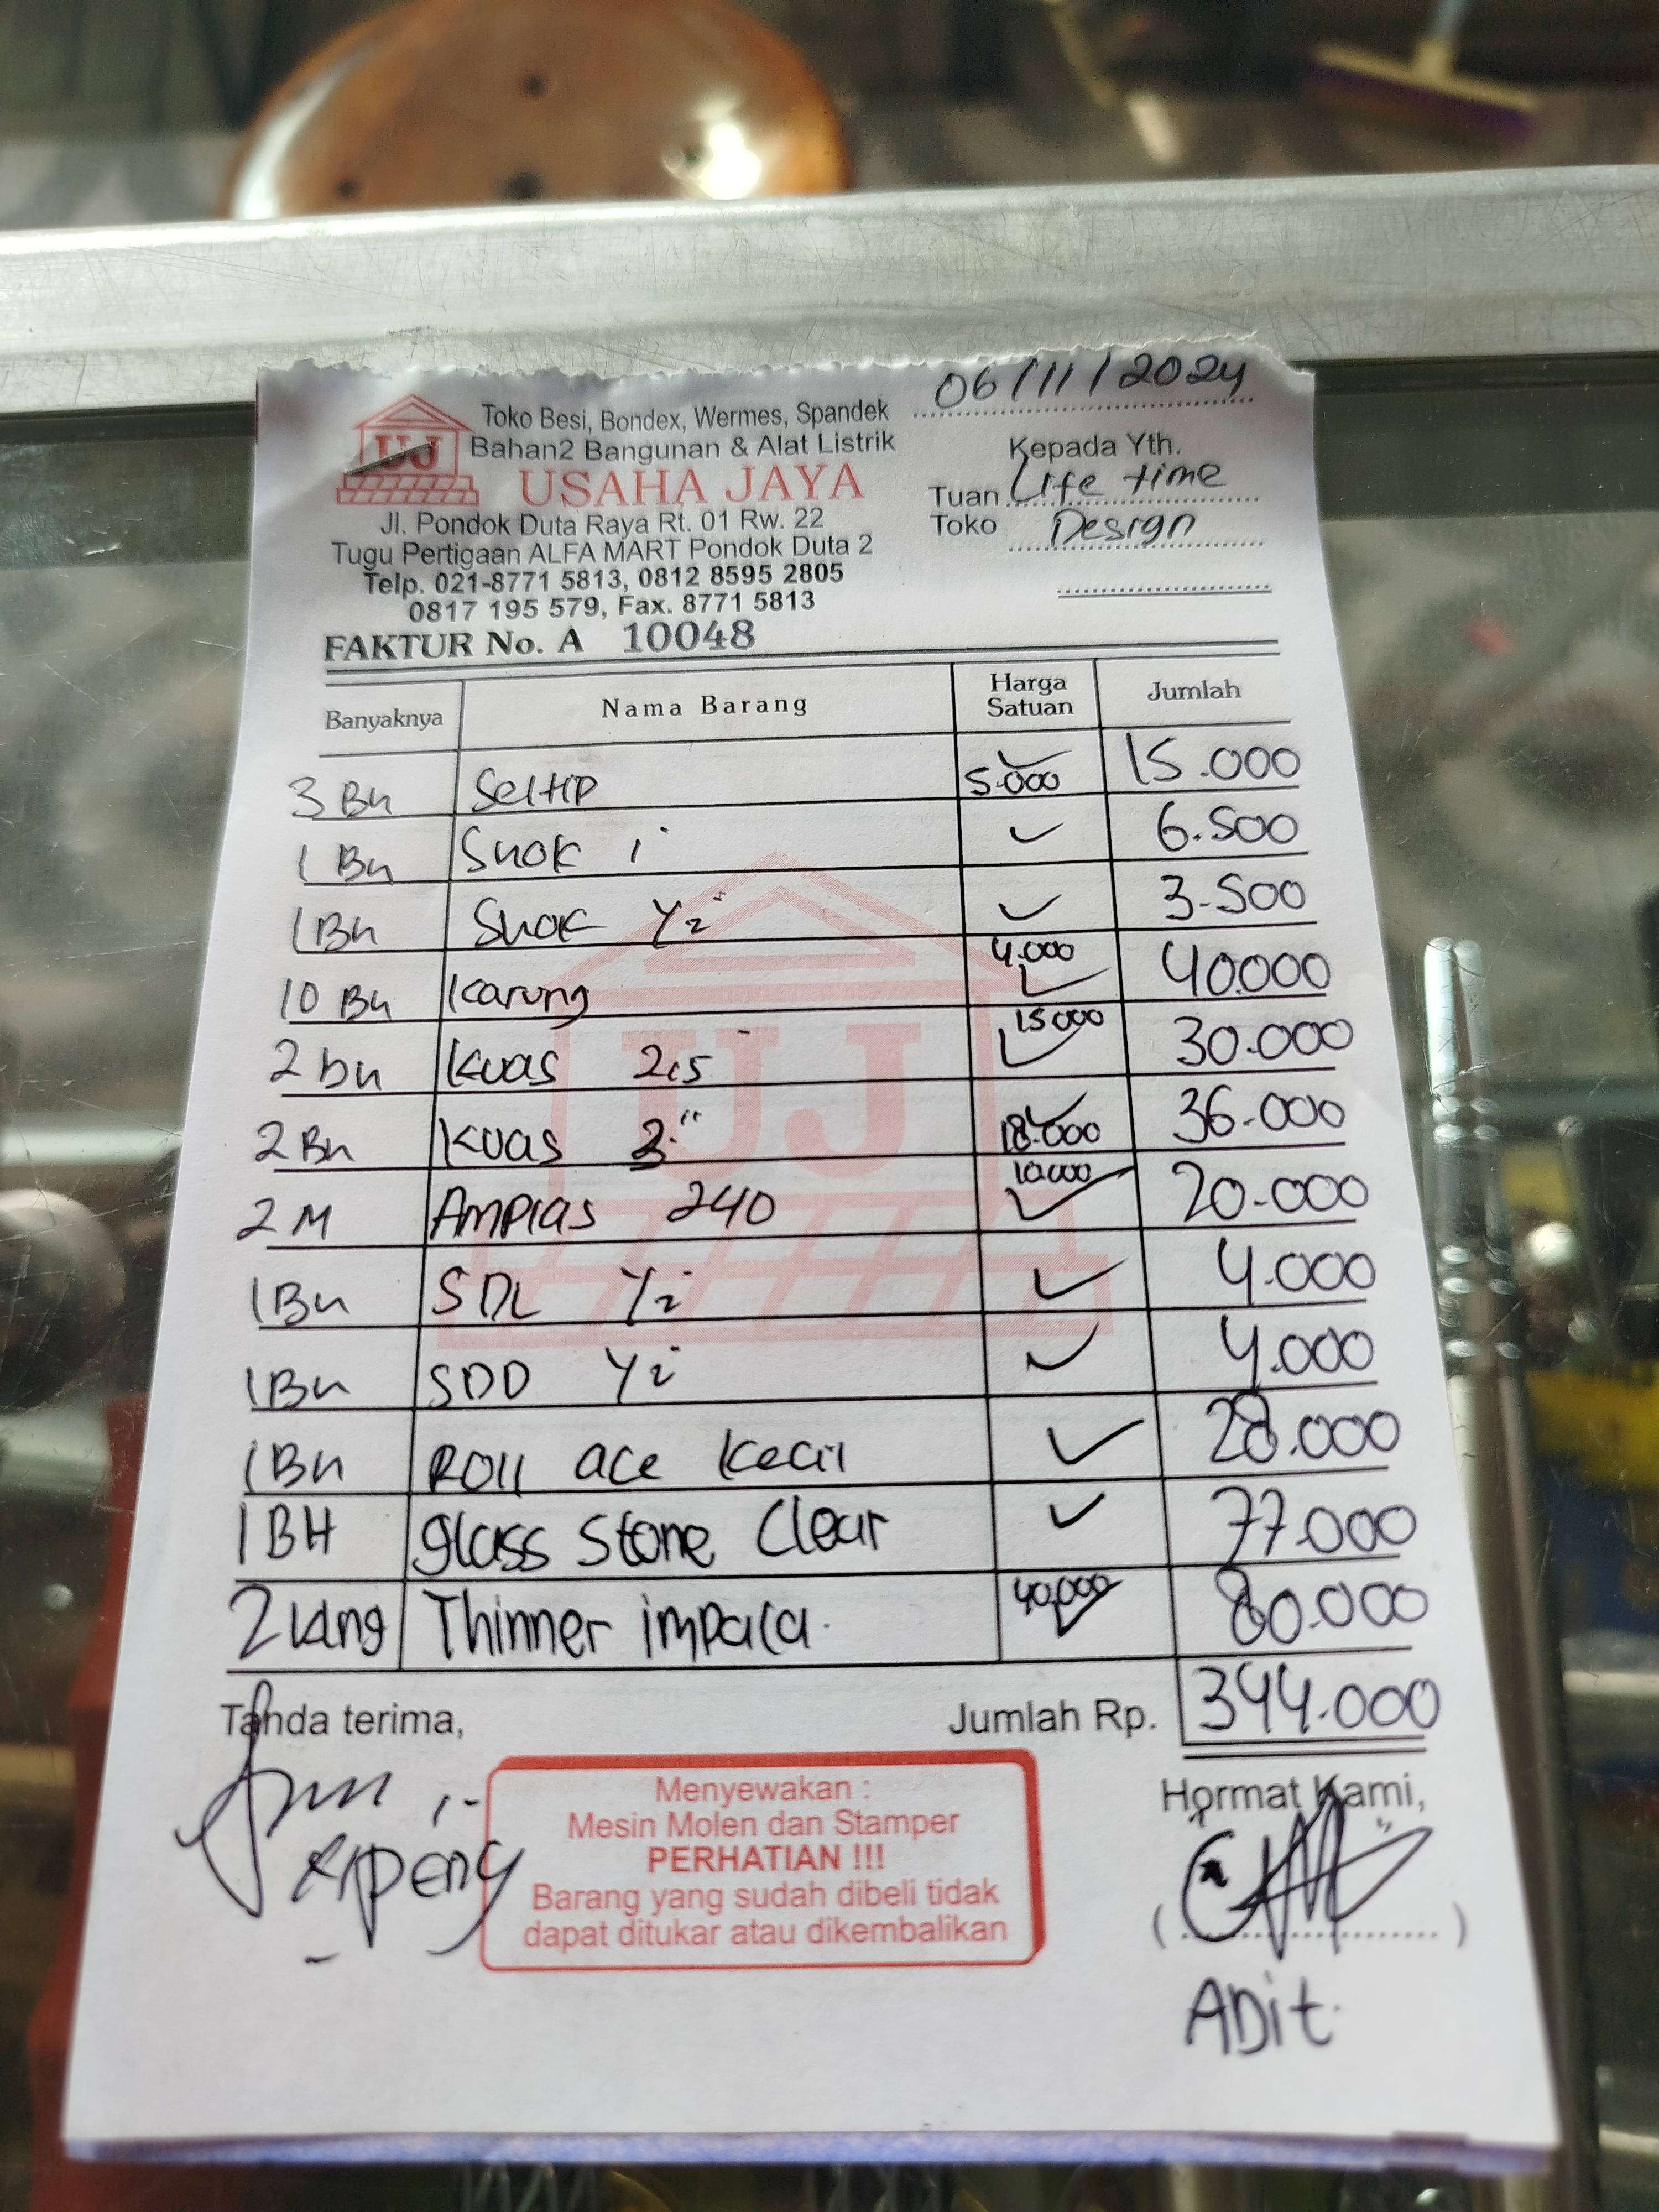 06/11/2024
Toko Besi, Bondex, Wermes, Spandek
Bahan2 Bangunan & Alat Listrik
UJ
USAHA JAYA
Jl. Pondok Duta Raya Rt. 01 Rw. 22
Tugu Pertigaan ALFA MART Pondok Duta 2
Telp. 021-8771 5813, 0812 8595 2805
0817 195 579, Fax. 8771 5813
Kepada Yth.
Tuan Life time
Toko Design
FAKTUR No. A 10048
Banyaknya Nama Barang Harga Satuan Jumlah
3 Bh Seltip 5.000 15.000
1 Bh Shok 1" 6.500
1 Bh Shok 1/2" 3.500
10 Bh Karung 4.000 40.000
2 bh Kuas 2,5" 15.000 30.000
2 Bh Kuas 3" 18.000 36.000
2 M Amplas 240 10.000 20.000
1 Bh SDL 1/2" 4.000
1 Bh SDD 1/2" 4.000
1 Bh Roll ace kecil 28.000
1 BH glass stone Clear 77.000
2 klng Thinner impala 40.000 80.000
Tanda terima, Jumlah Rp. 344.000
Menyewakan :
Mesin Molen dan Stamper
PERHATIAN !!!
Barang yang sudah dibeli tidak
dapat ditukar atau dikembalikan
Hormat Kami,
ADit